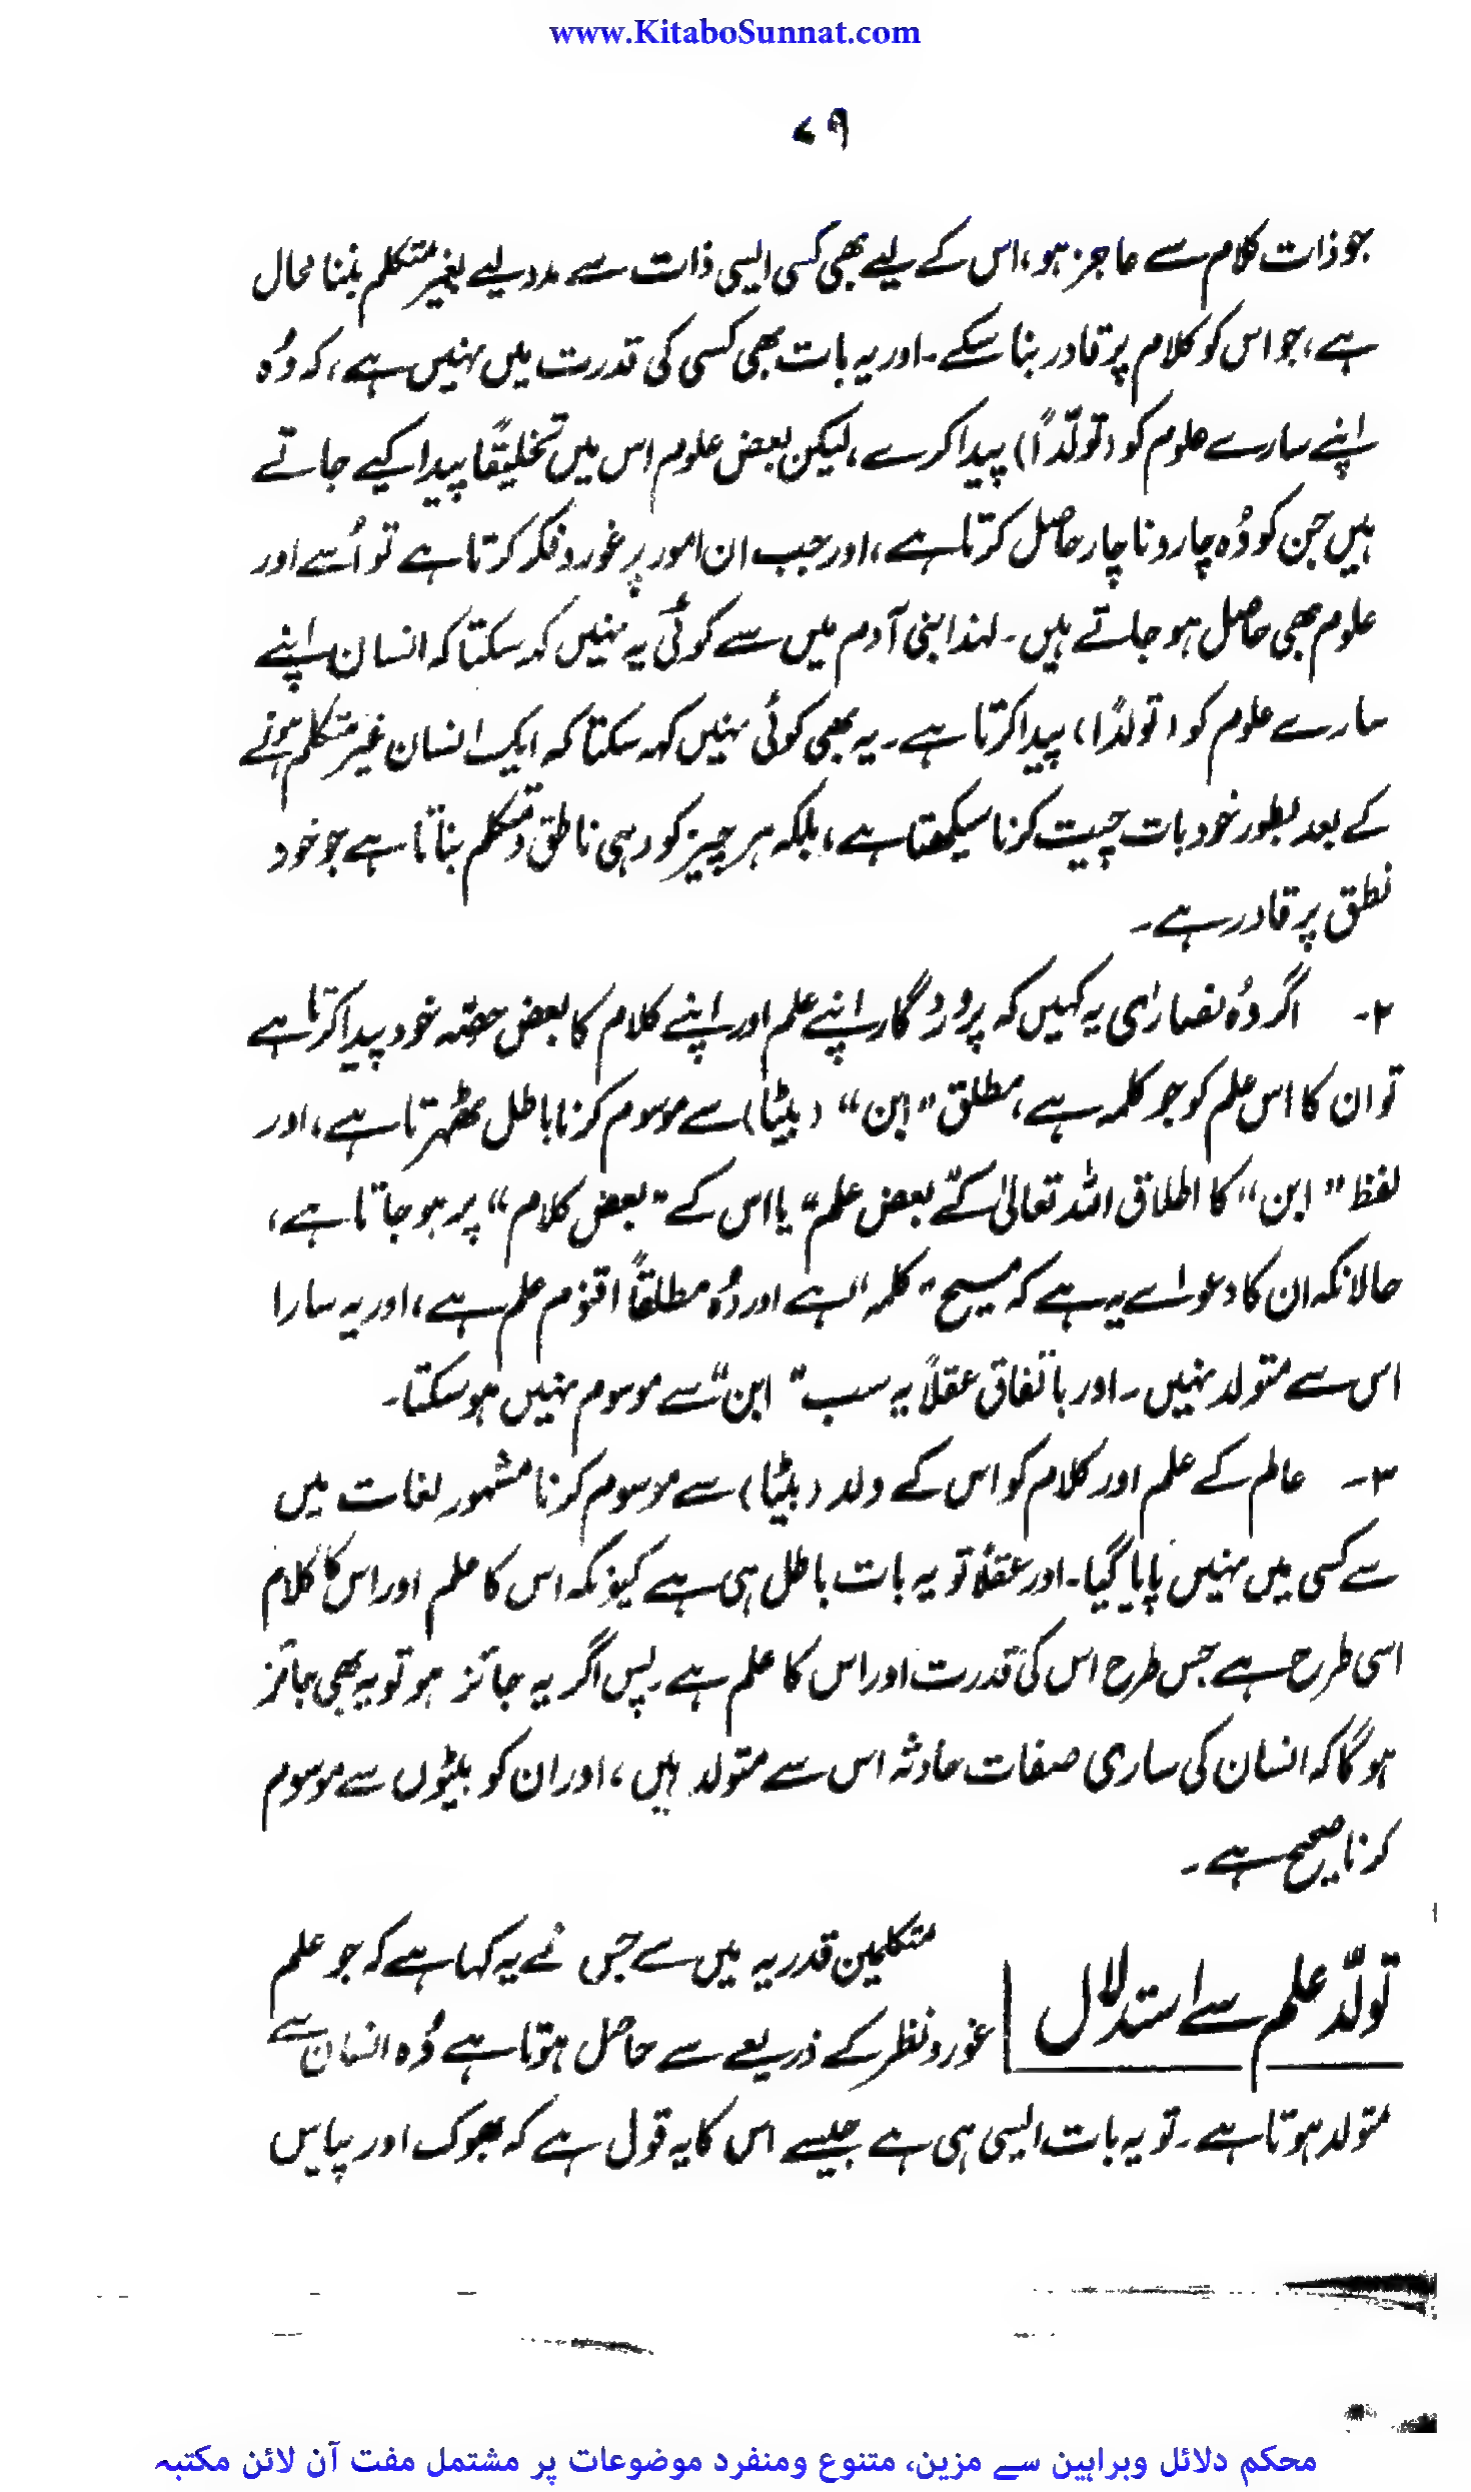 www.KitaboSunnat.com
۷۹
جو ذات کلام سے عاجز ہو، اس کے لیے بھی کسی ایسی ذات سے مدد لیے بغیر متکلم بننا محال
ہے، جو اس کو کلام پر قادر بنا سکے۔ اور یہ بات بھی کسی کی قدرت میں نہیں ہے، کہ وُہ
اپنے سارے علوم کو (تولّداً) پیدا کرے، لیکن بعض علوم اس میں تخلیقًا پیدا کیے جاتے
ہیں جن کو وُہ چار و ناچار حاصل کرتا ہے، اور جب ان امور پر غور و فکر کرتا ہے تو اُسے اور
علوم بھی حاصل ہو جاتے ہیں۔ لہذا بنی آدم میں سے کوئی یہ نہیں کہہ سکتا کہ انسان اپنے
سارے علوم کو (تولدًا) پیدا کرتا ہے۔ یہ بھی کوئی نہیں کہہ سکتا کہ ایک انسان غیر متکلم ہونے
کے بعد بطور خود بات چیت کرنا سیکھتا ہے، بلکہ ہر چیز کو وہی ناطق و متکلم بناتا ہے جو خود
نطق پر قادر ہے۔
۲۔ اگر وُہ نصارٰی یہ کہیں کہ پروردگار اپنے علم اور اپنے کلام کا بعض حصّہ خود پیدا کرتا ہے
تو ان کا اس علم کو جو کلمہ ہے، مطلق "ابن" (بیٹا) سے موسوم کرنا باطل ٹھہرتا ہے، اور
لفظ "ابن" کا اطلاق اللہ تعالیٰ کے "بعض علم" یا اس کے "بعض کلام" پر ہو جاتا ہے،
حالانکہ ان کا دعوٰے یہ ہے کہ مسیح "کلمہ" ہے اور وُہ مطلقاً اقنوم علم ہے، اور یہ سارا
اس سے متولد نہیں۔ اور باتفاق عقلاً یہ سب "ابن" سے موسوم نہیں ہو سکتا۔
۳۔ عالم کے علم اور کلام کو اس کے ولد (بیٹا) سے موسوم کرنا مشہور لغات میں
سے کسی میں نہیں پایا گیا۔ اور عقلاً تو یہ بات باطل ہی ہے کیونکہ اس کا علم اور اس کا کلام
اسی طرح ہے جس طرح اس کی قدرت اور اس کا علم ہے۔ پس اگر یہ جائز ہو تو یہ بھی جائز
ہو گا کہ انسان کی ساری صفات حادثہ اس سے متولد ہیں، اور ان کو بیٹوں سے موسوم
کرنا صحیح ہے۔
تولّد علم سے استدلال
متکلمین قدریہ میں سے جس نے یہ کہا ہے کہ جو علم
غور و نظر کے ذریعے سے حاصل ہوتا ہے وُہ انسان سے
متولد ہوتا ہے۔ تو یہ بات ایسی ہی ہے جیسے اس کا یہ قول ہے کہ بھوک اور پیاس
محکم دلائل وبراہین سے مزین، متنوع ومنفرد موضوعات پر مشتمل مفت آن لائن مکتبہ